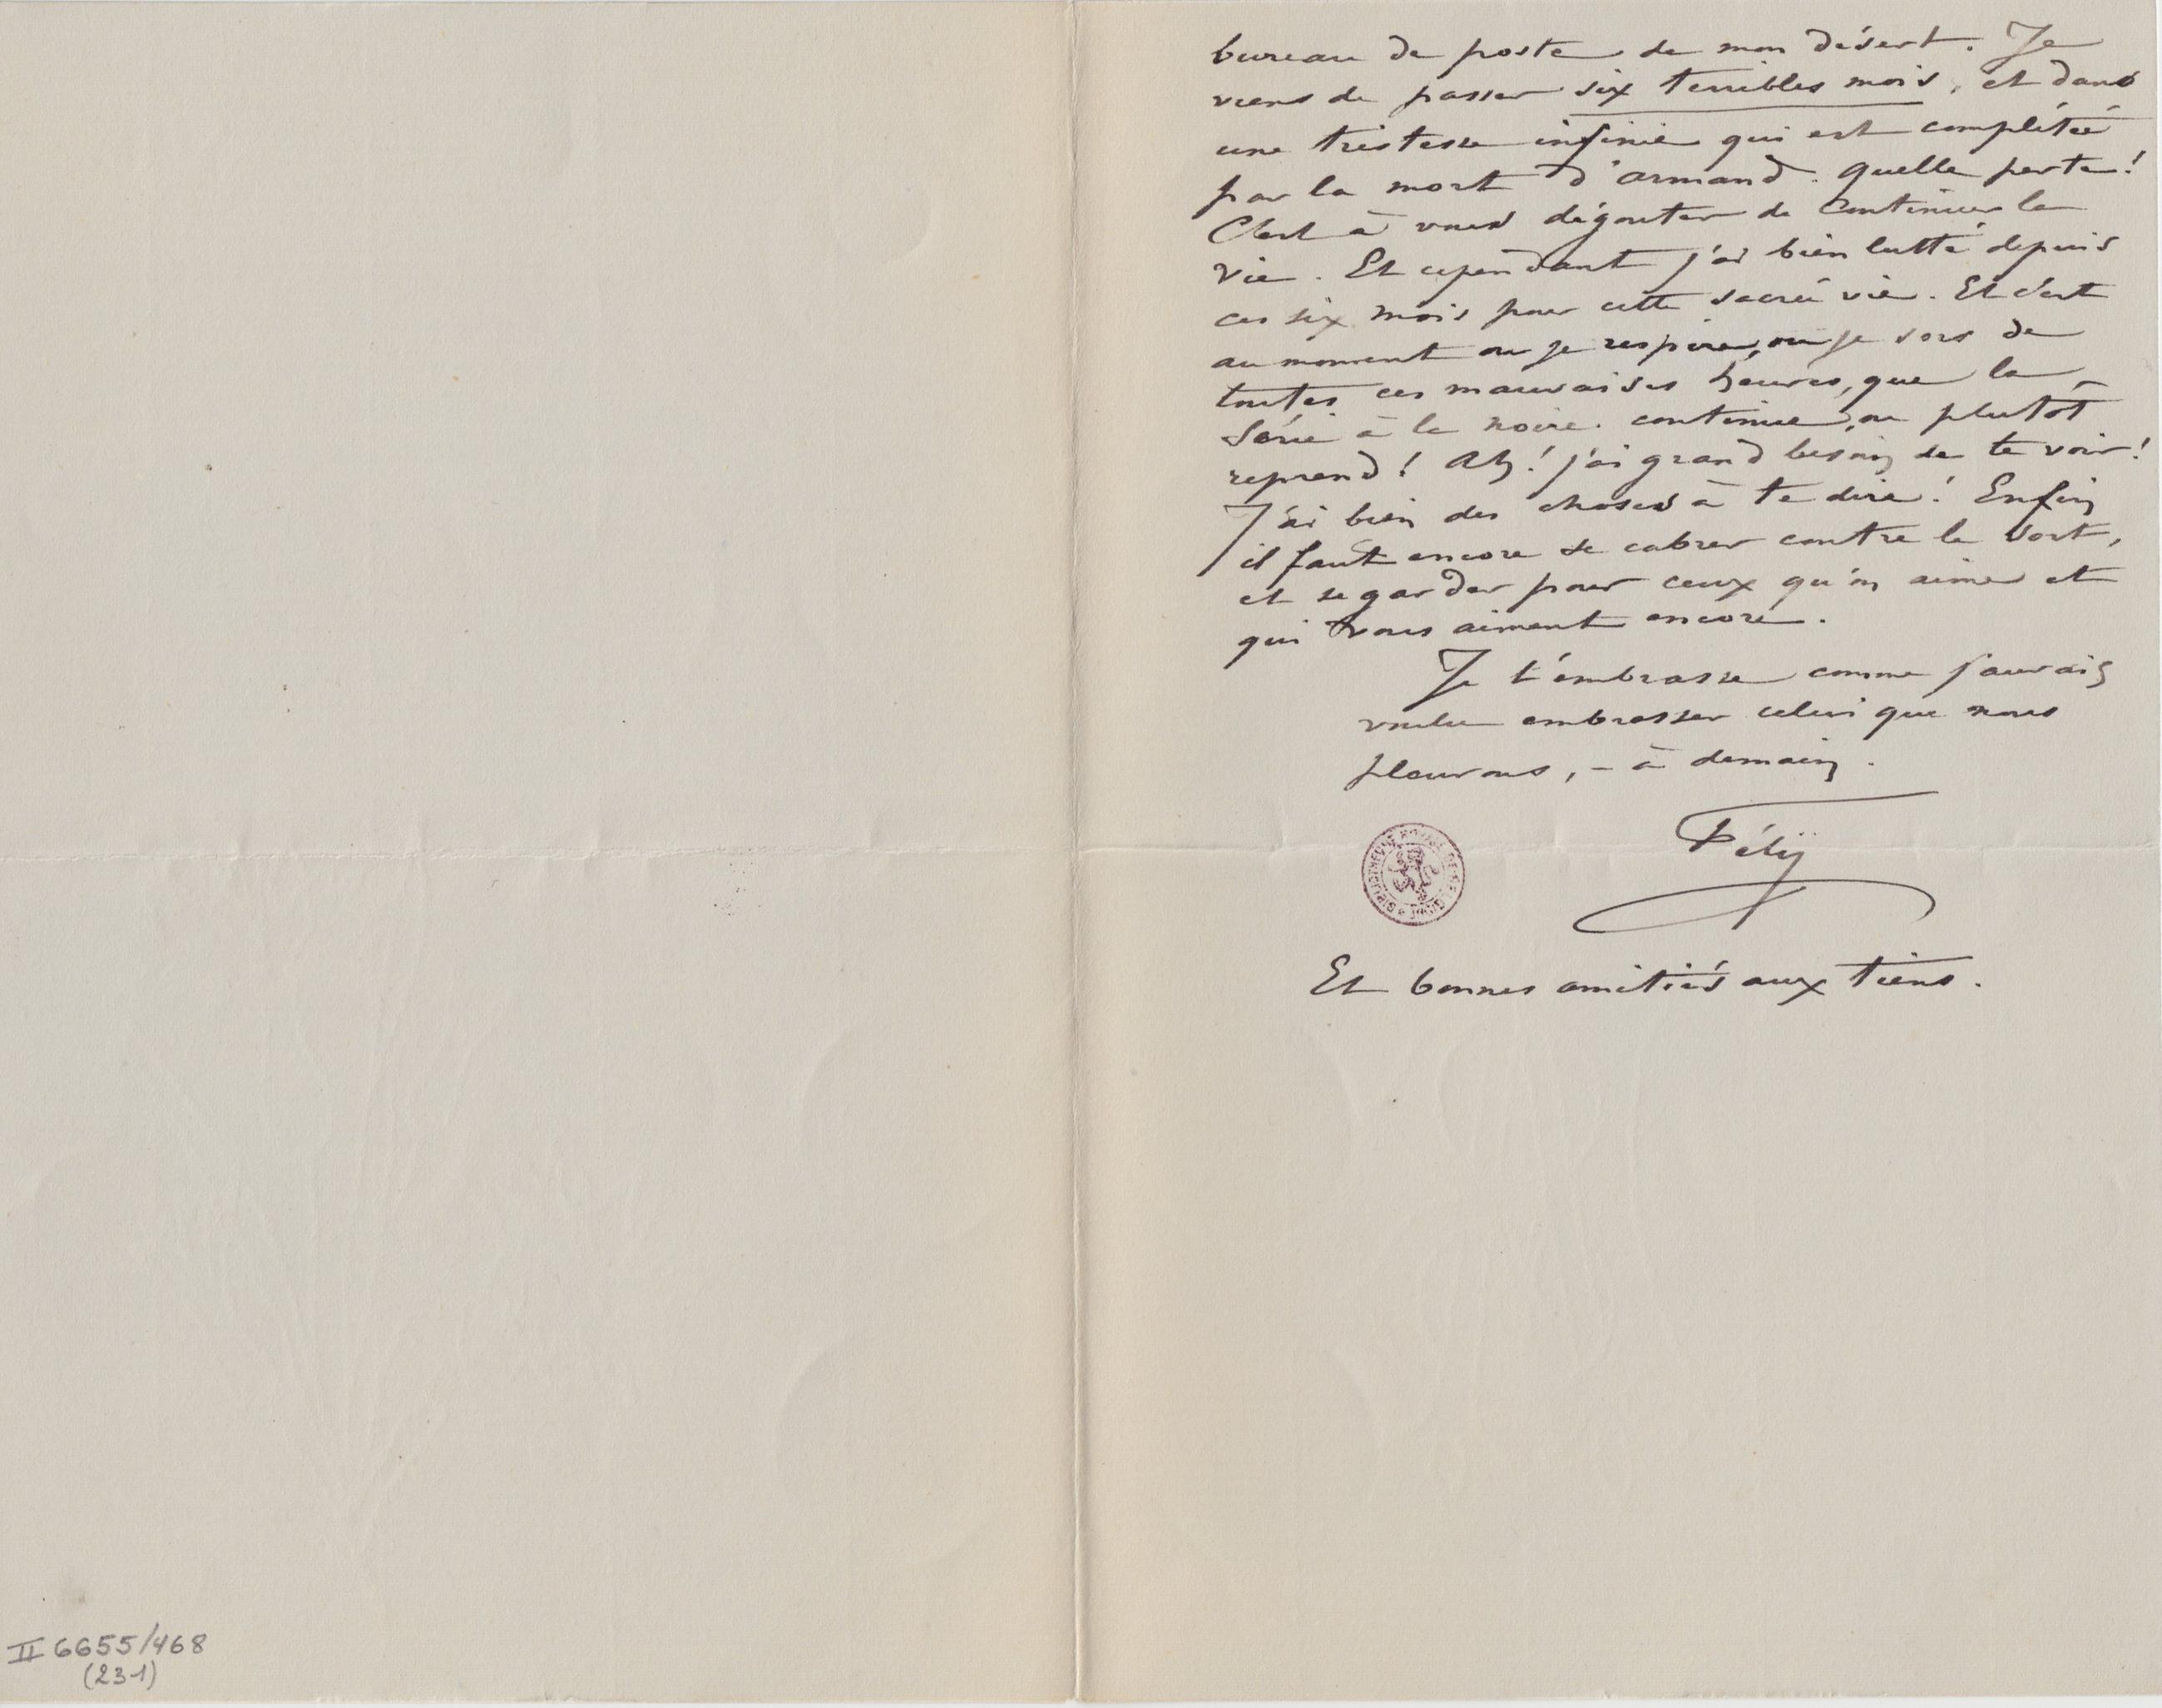 bureau de poste de mon désert. Je
viens de passer six terribles mois, et dans
une tristesse infinie qui est complétée
par la mort d'Armand. Quelle perte!
C'est à vous dégouter de continuer la
vie. Et cependant j'ai bien lutté depuis
ces six mois pour cette sacrée vie. Et c'est
au moment ou je respire, ou je sors de
toutes ces mauvaises heures, que la
Série à la noire continue, ou plutôt
reprend! Ah! j'ai grand besoin de te voir!
J'ai bien des choses à te dire! Enfin
il faut encore se cabrer contre le sort,
et se garder pour ceux qu'on aime et
qui vous aiment encore.
Je t'embrasse comme j'aurais
voulu embrasser celui que nous
pleurons, – à demain.
Fély
Et bonnes amitiés aux tiens.
II 6655/468
(23-1)